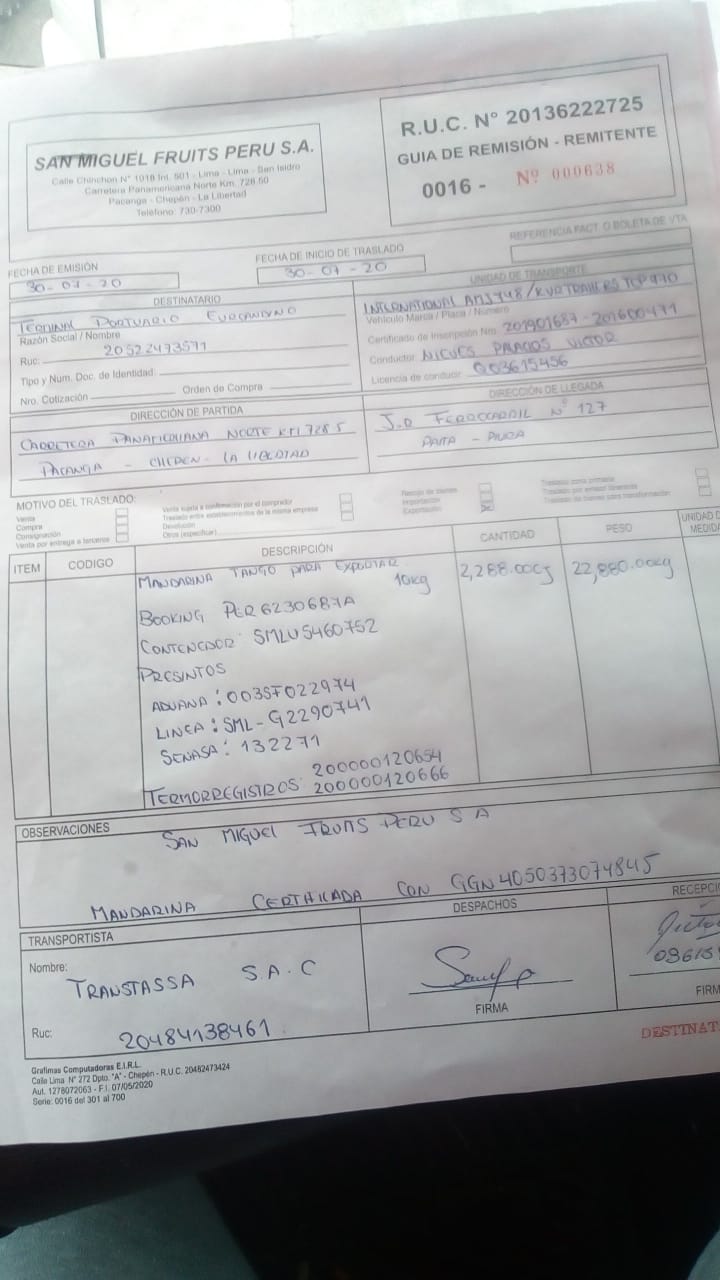 SAN MIGUEL FRUITS PERU S.A.
Calle Chinchon N° 1018 Int. 501 - Lima - Lima - San Isidro
Carretera Panamericana Norte Km. 728.50
Pacanga - Chepén - La Libertad
Teléfono: 730-7300
R.U.C. N° 20136222725
GUIA DE REMISIÓN - REMITENTE
0016 - Nº 000638
FECHA DE EMISIÓN
30-07-20
FECHA DE INICIO DE TRASLADO
30-07-20
REFERENCIA FACT. O BOLETA DE VTA
DESTINATARIO
TERMINAL PORTUARIO EUROANDINO
Razón Social / Nombre
Ruc: 20522473571
Tipo y Num. Doc. de Identidad:
Nro. Cotización Orden de Compra
UNIDAD DE TRANSPORTE
INTERNATIONAL
Vehículo Marca / Placa / Número
Certificado de Inscripción Nro. 201901687 - 201600471
Conductor: NIEVES PALACIOS VICTOR
Licencia de conducir Q03615456
DIRECCIÓN DE PARTIDA
CARRETERA PANAMERICANA NORTE KM 728.5
PACANGA - CHEPEN - LA LIBERTAD
DIRECCIÓN DE LLEGADA
FERROCARRIL N° 127
PAITA - PIURA
MOTIVO DEL TRASLADO:
Venta
Compra
Consignación
Venta por entrega a terceros
Venta sujeta a confirmación por el comprador
Traslado entre establecimientos de la misma empresa
Devolución
Otros (especificar)
Recojo de bienes
Importación
Exportación
Traslado zona primaria
Traslado por emisor itinerante
Traslado de bienes para transformación
ITEM CODIGO DESCRIPCIÓN CANTIDAD PESO UNIDAD D
MEDID
MANDARINA TANGO PARA EXPORTAR 2,288.00CJ 22,880.00Kg
10Kg
BOOKING PER6230687A
CONTENEDOR: SMLU5460752
PRESINTOS
ADUANA: 0035F022974
LINEA: SML-G2290741
SENASA: 132271
200000120654
TERMORREGISTROS: 200000120666
OBSERVACIONES
SAN MIGUEL FRUITS PERU S A
MANDARINA CERTIFICADA CON GGN 4050373074845
TRANSPORTISTA
Nombre:
TRANSTASSA S.A.C
Ruc: 20484138461
DESPACHOS
FIRMA
RECEPCIÓ
FIRM
DESTINAT
Grafimas Computadoras E.I.R.L.
Calle Lima N° 272 Dpto. "A" - Chepén - R.U.C. 20482473424
Aut. 1278072063 - F.I. 07/05/2020
Serie: 0016 del 301 al 700